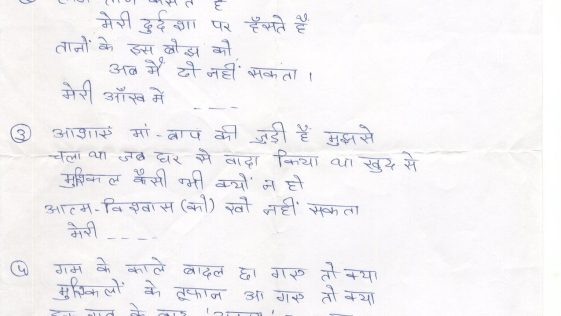 मेरी दुर्दशा पर हँसते है
तानों के इस बोझ को
अब मैं ढो नहीं सकता ।
मेरी आँख में ---
③ आशाएं मां-बाप की जुड़ी हैं मुझसे
चला था जब घर से वादा किया था खुद से
मुश्किल कैसी भी क्यों न हो
आत्म-विश्वास (को) खो नहीं सकता
मेरी ----
④ गम के काले बादल छा गए तो क्या
मुश्किलों के तूफान आ गए तो क्या
के बाद